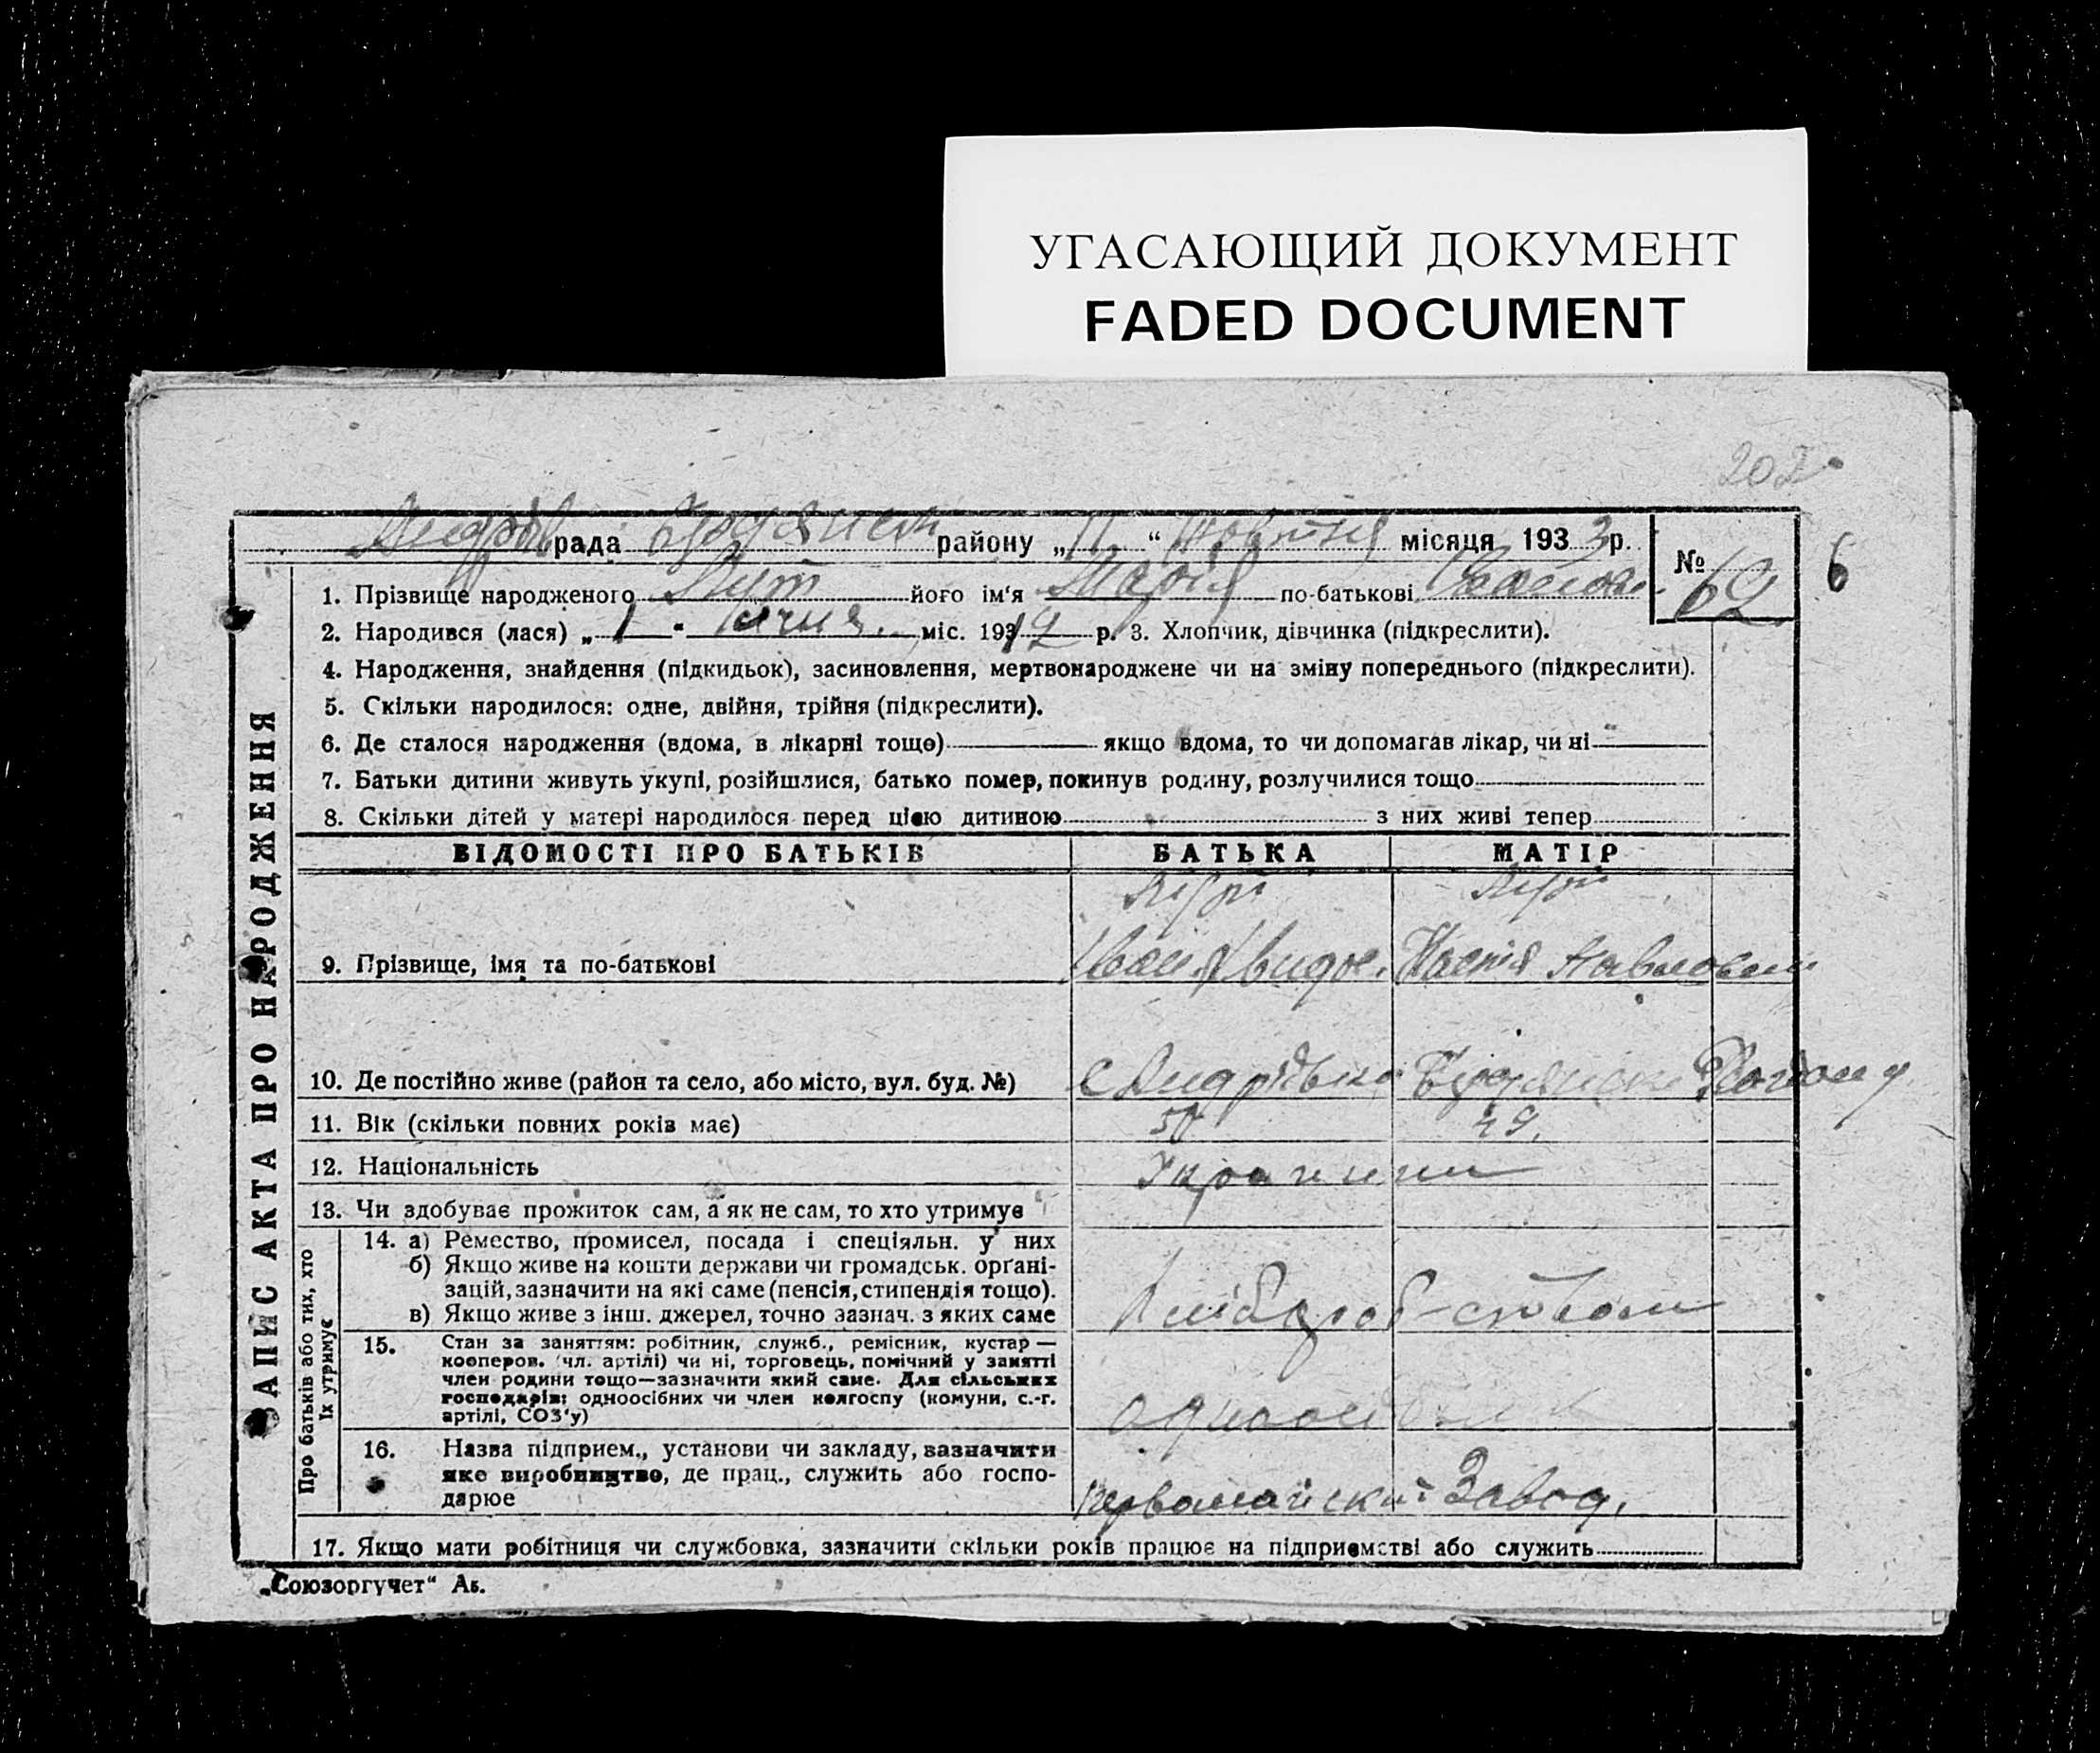 УГАСАЮЩИЙ ДОКУМЕНТ
FADED DOCUMENT
202
рада району „11“ Жовтня місяця 1933 р.
№ 62
6
1. Прізвище народженого його ім'я Марія по-батькові
2. Народився (лася) „1“ січня міс. 1912 р. 3. Хлопчик, дівчинка (підкреслити).
4. Народження, знайдення (підкидьок), засиновлення, мертвонароджене чи на зміну попереднього (підкреслити).
5. Скільки народилося: одне, двійня, трійня (підкреслити).
6. Де сталося народження (вдома, в лікарні тощо) якщо вдома, то чи допомагав лікар, чи ні
7. Батьки дитини живуть укупі, розійшлися, батько помер, покинув родину, розлучилися тощо
8. Скільки дітей у матері народилося перед цією дитиною з них живі тепер
ЗАПИС АКТА ПРО НАРОДЖЕННЯ
ВІДОМОСТІ ПРО БАТЬКІВ БАТЬКА МАТІР
9. Прізвище, імя та по-батькові Іван Настя Павловна
10. Де постійно живе (район та село, або місто, вул. буд. №) с Району
11. Вік (скільки повних років має) 50 49.
12. Національність Українці
13. Чи здобуває прожиток сам, а як не сам, то хто утримує
Про батьків або тих, хто
їх утримує
14. а) Ремество, промисел, посада і спеціяльн. у них
б) Якщо живе на кошти держави чи громадськ. орґані-
зацій, зазначити на які саме (пенсія, стипендія тощо).
в) Якщо живе з інш. джерел, точно зазнач. з яких саме Хлібороб-ством
15. Стан за заняттям: робітник, служб., ремісник, кустар —
кооперов. (чл. артілі) чи ні, торговець, помічний у занятті
член родини тощо—зазначити який саме. Для сільських
господарів: одноосібних чи член колгоспу (комуни, с.-г.
артілі, СОЗ'у)
16. Назва підприєм., установи чи закладу, зазначити
яке виробництво, де прац., служить або госпо-
дарює Первомайский Завод.
17. Якщо мати робітниця чи службовка, зазначити скільки років працює на підприємстві або служить
„Союзоргучет“ Аб.